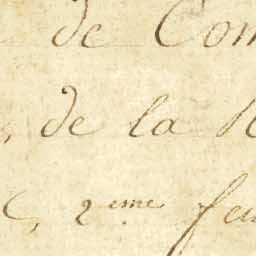 de Com
, de la R
, 2eme feu